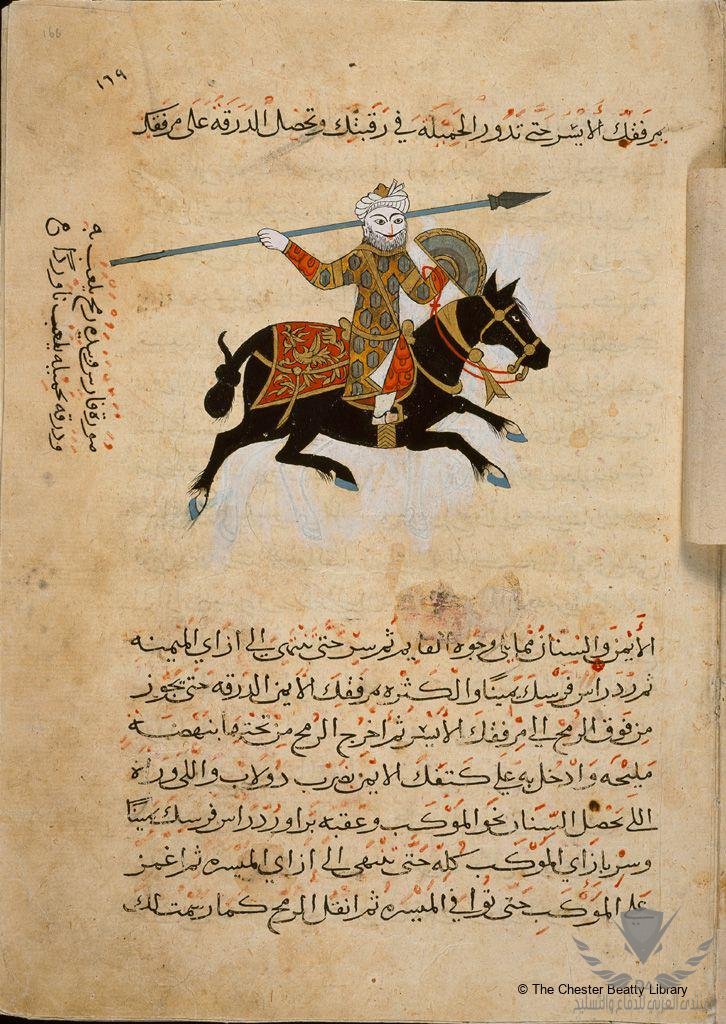 166
١٦٩
مرفقك الأيسر حتى تدور الحميلة في رقبتك وتحصل الدرقه على مرفقك
صورة فارس وبيده رمح يلعب به
ودرقه بحميله يلعب ناورد
الأيمن والسنان مما يلي وجوه القايم ثم سر حتى تنتهي الى ازاي الميمنه
ثم رد راس فرسك يمينا والكثره مرفقك الايمن الدرقه حتى يجوز
من فوق الرمح الى مرفقك الأيسر ثم اخرج الرمح من تحتها بنهضة
مليحه وادخل به على كتفك الايمن بضرب دولاب واللي وراه
اللي تحصل السنان نحو الموكب وعقبه برا ورد راس فرسك يمينا
وسر بازاي الموكب كله حتى تنتهي الى ازاي الميسره ثم اغمز
على الموكب حتى توافي الميسره ثم انقل الرمح كما رسمت لك
© The Chester Beatty Library
المنتدى العربي للدفاع والتسليح